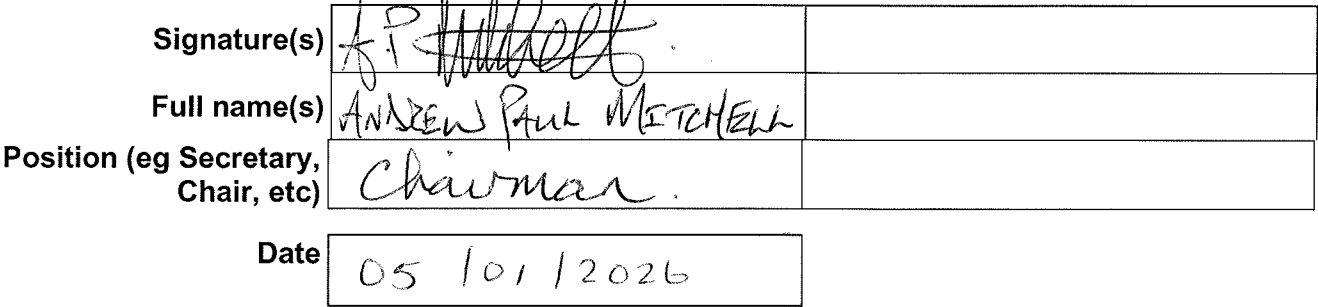 Signature(s) A P Mitchell.
Full name(s) ANDREW PAUL MITCHELL
Position (eg Secretary,
Chair, etc) Chairman.
Date 05 /01 /2026